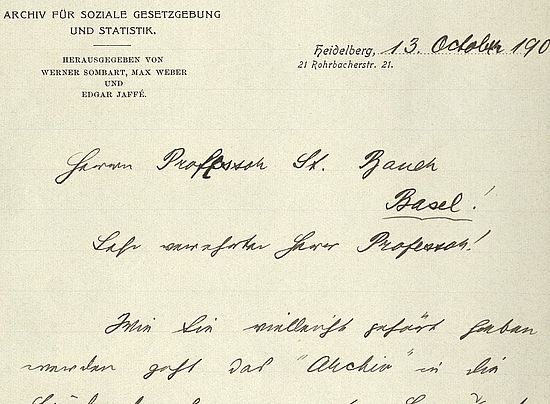 ARCHIV FÜR SOZIALE GESETZGEBUNG
UND STATISTIK.
HERAUSGEGEBEN VON
WERNER SOMBART, MAX WEBER
UND
EDGAR JAFFÉ.
Heidelberg, 13. October 190
21 Rohrbacherstr. 21.
Herrn Professor St. Bauer
Basel!
Sehr verehrter Herr Professor!
Wie Sie vielleicht gehört haben
werden geht das "Archiv" in die